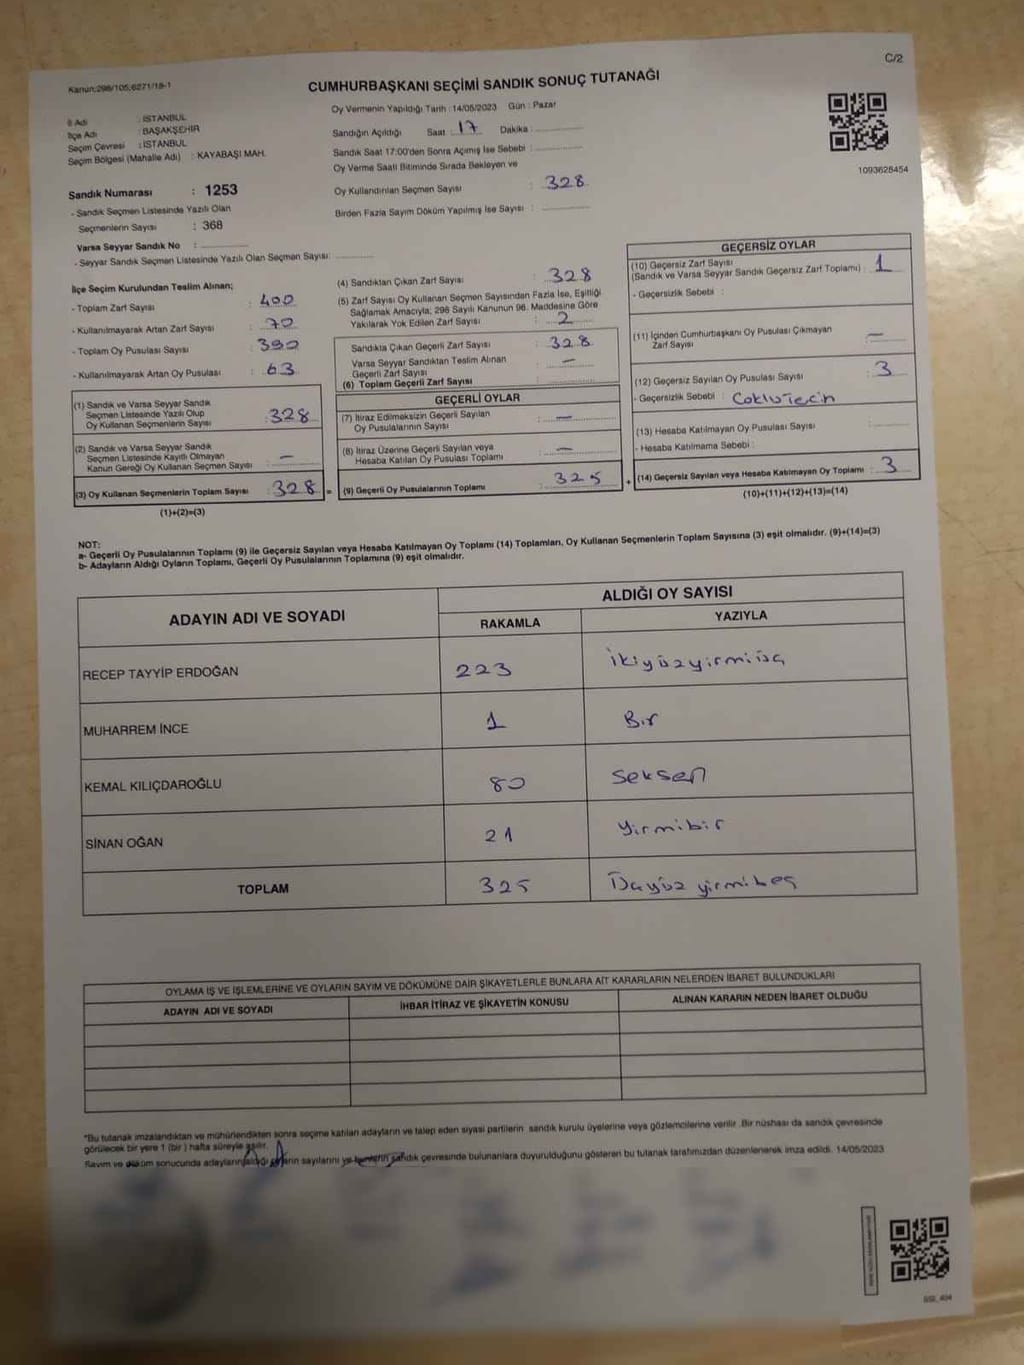 C/2
Kanun:298/105,6271/18-1
CUMHURBAŞKANI SEÇİMİ SANDIK SONUÇ TUTANAĞI
İl Adı : İSTANBUL
İlçe Adı : BAŞAKŞEHİR
Seçim Çevresi : İSTANBUL
Seçim Bölgesi (Mahalle Adı) : KAYABAŞI MAH.
Sandık Numarası : 1253
- Sandık Seçmen Listesinde Yazılı Olan
Seçmenlerin Sayısı : 368
Varsa Seyyar Sandık No :
- Seyyar Sandık Seçmen Listesinde Yazılı Olan Seçmen Sayısı:
Oy Vermenin Yapıldığı Tarih : 14/05/2023 Gün : Pazar
Sandığın Açıldığı Saat : 17 Dakika :
Sandık Saat 17:00'den Sonra Açımış İse Sebebi :
Oy Verme Saati Bitiminde Sırada Bekleyen ve
Oy Kullandırılan Seçmen Sayısı : 328
Birden Fazla Sayım Döküm Yapılmış İse Sayısı :
1093628454
İlçe Seçim Kurulundan Teslim Alınan;
- Toplam Zarf Sayısı : 400
- Kullanılmayarak Artan Zarf Sayısı : 70
- Toplam Oy Pusulası Sayısı : 390
- Kullanılmayarak Artan Oy Pusulası : 63
(1) Sandık ve Varsa Seyyar Sandık
Seçmen Listesinde Yazılı Olup
Oy Kullanan Seçmenlerin Sayısı : 328
(2) Sandık ve Varsa Seyyar Sandık
Seçmen Listesinde Kayıtlı Olmayan
Kanun Gereği Oy Kullanan Seçmen Sayısı : -
(3) Oy Kullanan Seçmenlerin Toplam Sayısı : 328 =
(1)+(2)=(3)
(4) Sandıktan Çıkan Zarf Sayısı : 328
(5) Zarf Sayısı Oy Kullanan Seçmen Sayısından Fazla İse, Eşitliği
Sağlamak Amacıyla; 298 Sayılı Kanunun 98. Maddesine Göre
Yakılarak Yok Edilen Zarf Sayısı : 2
Sandıkta Çıkan Geçerli Zarf Sayısı : 328
Varsa Seyyar Sandıktan Teslim Alınan
Geçerli Zarf Sayısı : -
(6) Toplam Geçerli Zarf Sayısı :
GEÇERLİ OYLAR
(7) İtiraz Edilmeksizin Geçerli Sayılan
Oy Pusulalarının Sayısı : -
(8) İtiraz Üzerine Geçerli Sayılan veya
Hesaba Katılan Oy Pusulası Toplamı : -
(9) Geçerli Oy Pusulalarının Toplamı : 325 +
GEÇERSİZ OYLAR
(10) Geçersiz Zarf Sayısı
(Sandık ve Varsa Seyyar Sandık Geçersiz Zarf Toplamı) : 1
- Geçersizlik Sebebi :
(11) İçinden Cumhurbaşkanı Oy Pusulası Çıkmayan
Zarf Sayısı : -
(12) Geçersiz Sayılan Oy Pusulası Sayısı : 3
- Geçersizlik Sebebi :
(13) Hesaba Katılmayan Oy Pusulası Sayısı :
- Hesaba Katılmama Sebebi :
(14) Geçersiz Sayılan veya Hesaba Katılmayan Oy Toplamı : 3
(10)+(11)+(12)+(13)=(14)
NOT:
a- Geçerli Oy Pusulalarının Toplamı (9) ile Geçersiz Sayılan veya Hesaba Katılmayan Oy Toplamı (14) Toplamları, Oy Kullanan Seçmenlerin Toplam Sayısına (3) eşit olmalıdır. (9)+(14)=(3)
b- Adayların Aldığı Oyların Toplamı, Geçerli Oy Pusulalarının Toplamına (9) eşit olmalıdır.
ADAYIN ADI VE SOYADI
ALDIĞI OY SAYISI
RAKAMLA YAZIYLA
RECEP TAYYİP ERDOĞAN 223 ikiyüzyirmiüç
MUHARREM İNCE 1 Bir
KEMAL KILIÇDAROĞLU 80 seksen
SİNAN OĞAN 21 yirmibir
TOPLAM 325 Üçyüz yirmibeş
OYLAMA İŞ VE İŞLEMLERİNE VE OYLARIN SAYIM VE DÖKÜMÜNE DAİR ŞİKAYETLERLE BUNLARA AİT KARARLARIN NELERDEN İBARET BULUNDUKLARI
ADAYIN ADI VE SOYADI İHBAR İTİRAZ VE ŞİKAYETİN KONUSU ALINAN KARARIN NEDEN İBARET OLDUĞU
*Bu tutanak imzalandıktan ve mühürlendikten sonra seçime katılan adayların ve talep eden siyasi partilerin sandık kurulu üyelerine veya gözlemcilerine verilir. Bir nüshası da sandık çevresinde
görülecek bir yere 1 (bir ) hafta süreyle asılır.
Sayım ve döküm sonucunda adayların aldığı sayılarını sandık çevresinde bulunanlara duyurulduğunu gösteren bu tutanak tarafımızdan düzenlenerek imza edildi. 14/05/2023